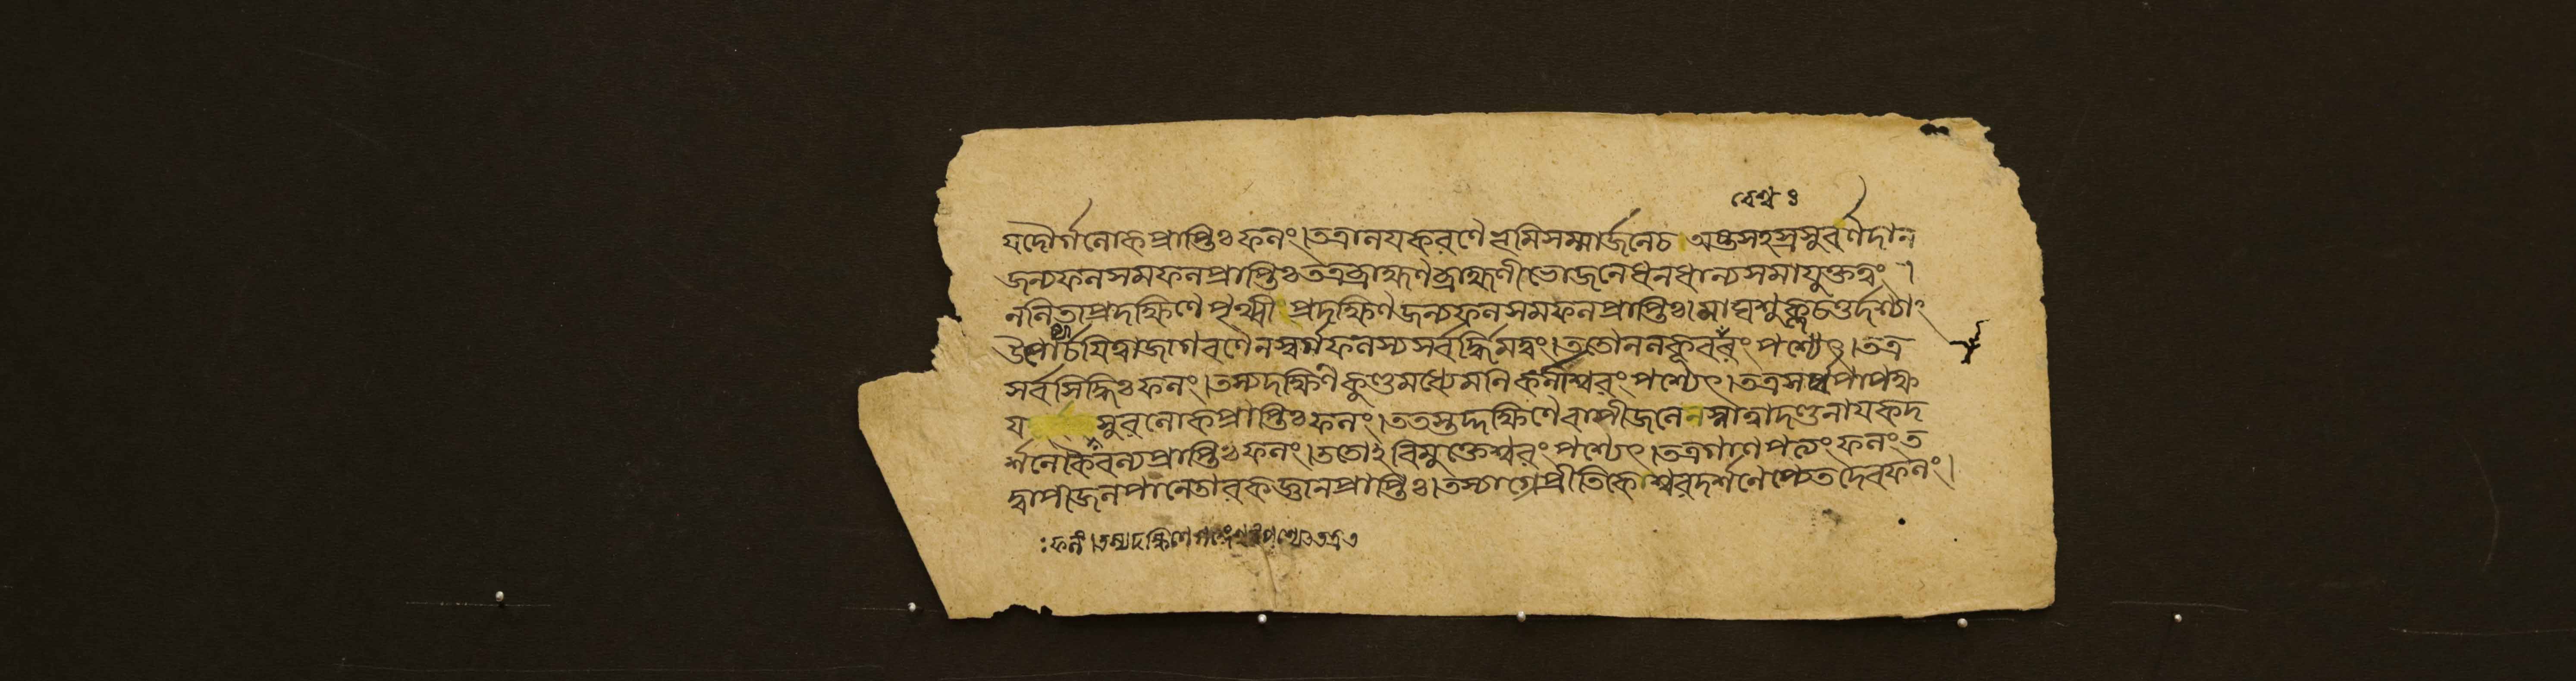 যদৌর্গলোকপ্রাপ্তিঃ ফলং। তত্রালযকরণে ভূমিসম্মার্জনেচ অষ্টসহস্রসুবর্ণদান
জন্যফলসমফলপ্রাপ্তিঃ তত্রব্রাহ্মণব্রাহ্মণীভোজনেধনধান্যসমাযুক্তত্বং ।
ললিতাপ্রদক্ষিণে পৃথ্বীপ্রদক্ষিণজন্যফলসমফলপ্রাপ্তিঃ। মাঘশুক্লচতুর্দশ্যাং
উপোষ্যার্চযিত্বাজাগরণেনস্বর্গফলস্যসর্বর্দ্ধিমত্বং। ততোনলকূবরং পশ্যেৎ। তত্র
সর্বসিদ্ধিঃ ফলং। তস্যদক্ষিণকুণ্ডমধ্যেমনিকর্নীশ্বরং পশ্যেৎ। তত্রসর্বপাপক্ষ
য সুরলোকপ্রাপ্তিঃ ফলং। ততস্তদ্দক্ষিণেবাপীজলেনস্নাত্বাদণ্ডনাযকদ
র্শনেকৈবল্যপ্রাপ্তিঃ ফলং। ততোঽবিমুক্তেশ্বরং পশ্যেৎ। তত্রগাণপত্যং ফলং ত
দ্বাপীজলপানেতারকজ্ঞানপ্রাপ্তিঃ। তস্যাগ্রেপ্রীতিকেশ্বরদর্শনেপ্যেতদেবফলং।
ঃফলং। তস্যদক্ষিণে পশ্যেৎ তত্র